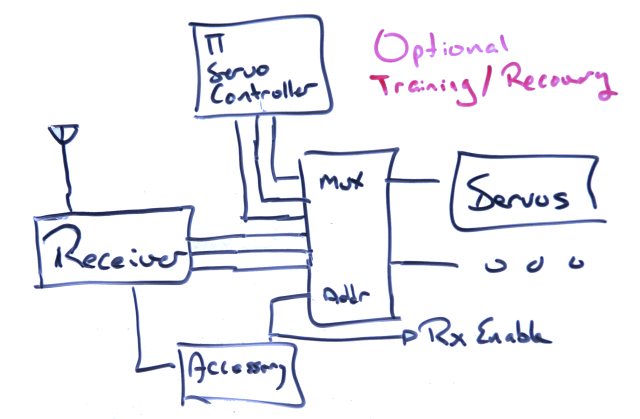 Π
Servo
Controller
Optional
Training/Recovery
Mux
Servos
Receiver
Addr
Rx Enable
Accessory